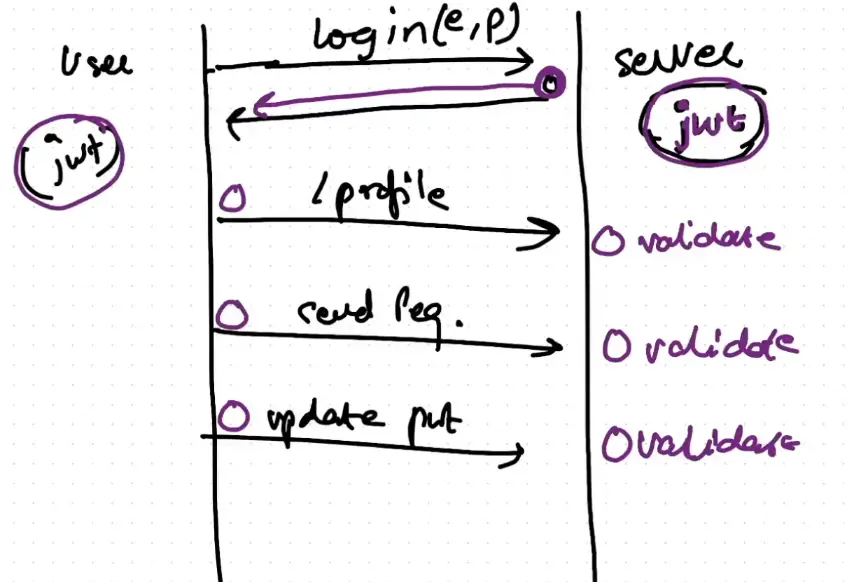 login(e,p)
User
server
jwt
jwt
/profile
validate
send req.
validate
update put
validate